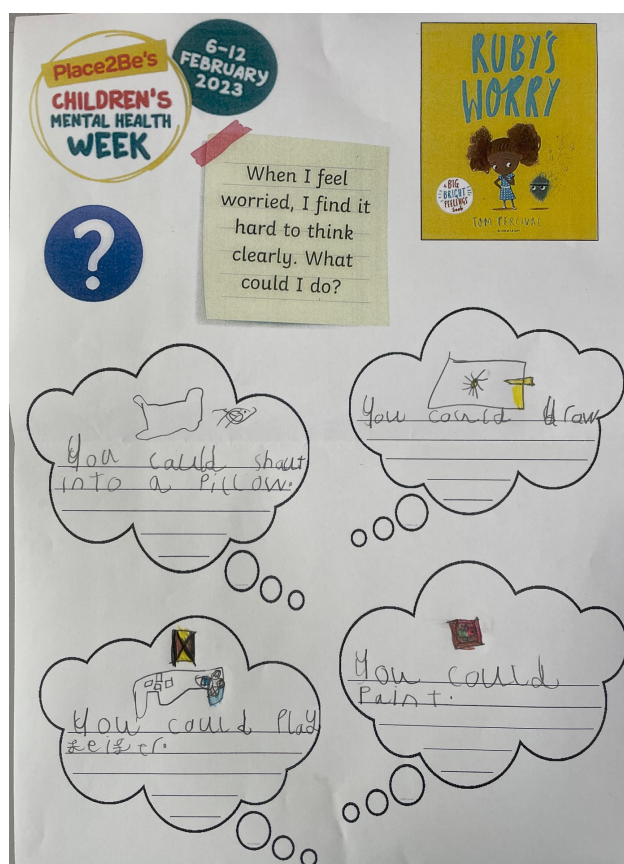 Place2Be's
CHILDREN'S
MENTAL HEALTH
WEEK
6-12
FEBRUARY
2023
RUBY'S
WORRY
A
BIG
BRIGHT
FEELINGS
book
TOM PERCIVAL
?
When I feel
worried, I find it
hard to think
clearly. What
could I do?
You could shout
into a pillow.
You could draw
You could play
You could
Paint.